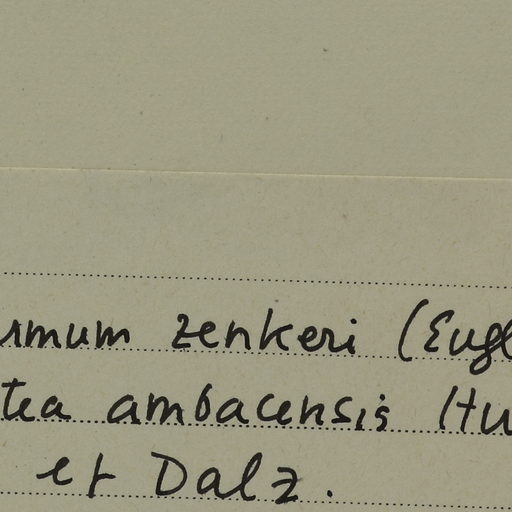 urmum zenkeri (Engl
tea ambacensis Hu
et Dalz.